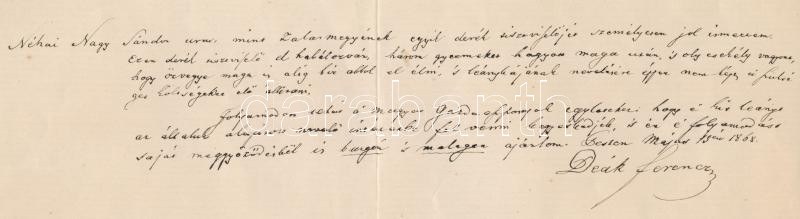 Néhai Nagy Sándor urat, mint Zalamegyének egyik derék tisztviselőjét személyesen jól ismertem.
Ezen derék tisztviselő el halálozván, három gyermeket hagyott maga után, 's oly csekély vagyont,
hogy özvegye maga is alig bir abból el élni, 's leánykájának nevelésére éppen nem képes a szüksé-
ges költségeket elő állitani.
Folyamodom tehát a magyar Gazdasszonyok egyletéhez, hogy e kis leányt
az általuk alapított nevelő intézetbe fel venni kegyeskedjék, 's én e folyamodást
saját meggyőződésből is buzgón 's melegen ajánlom. Pesten Május 13án 1868.
Deák Ferencz
darabanth